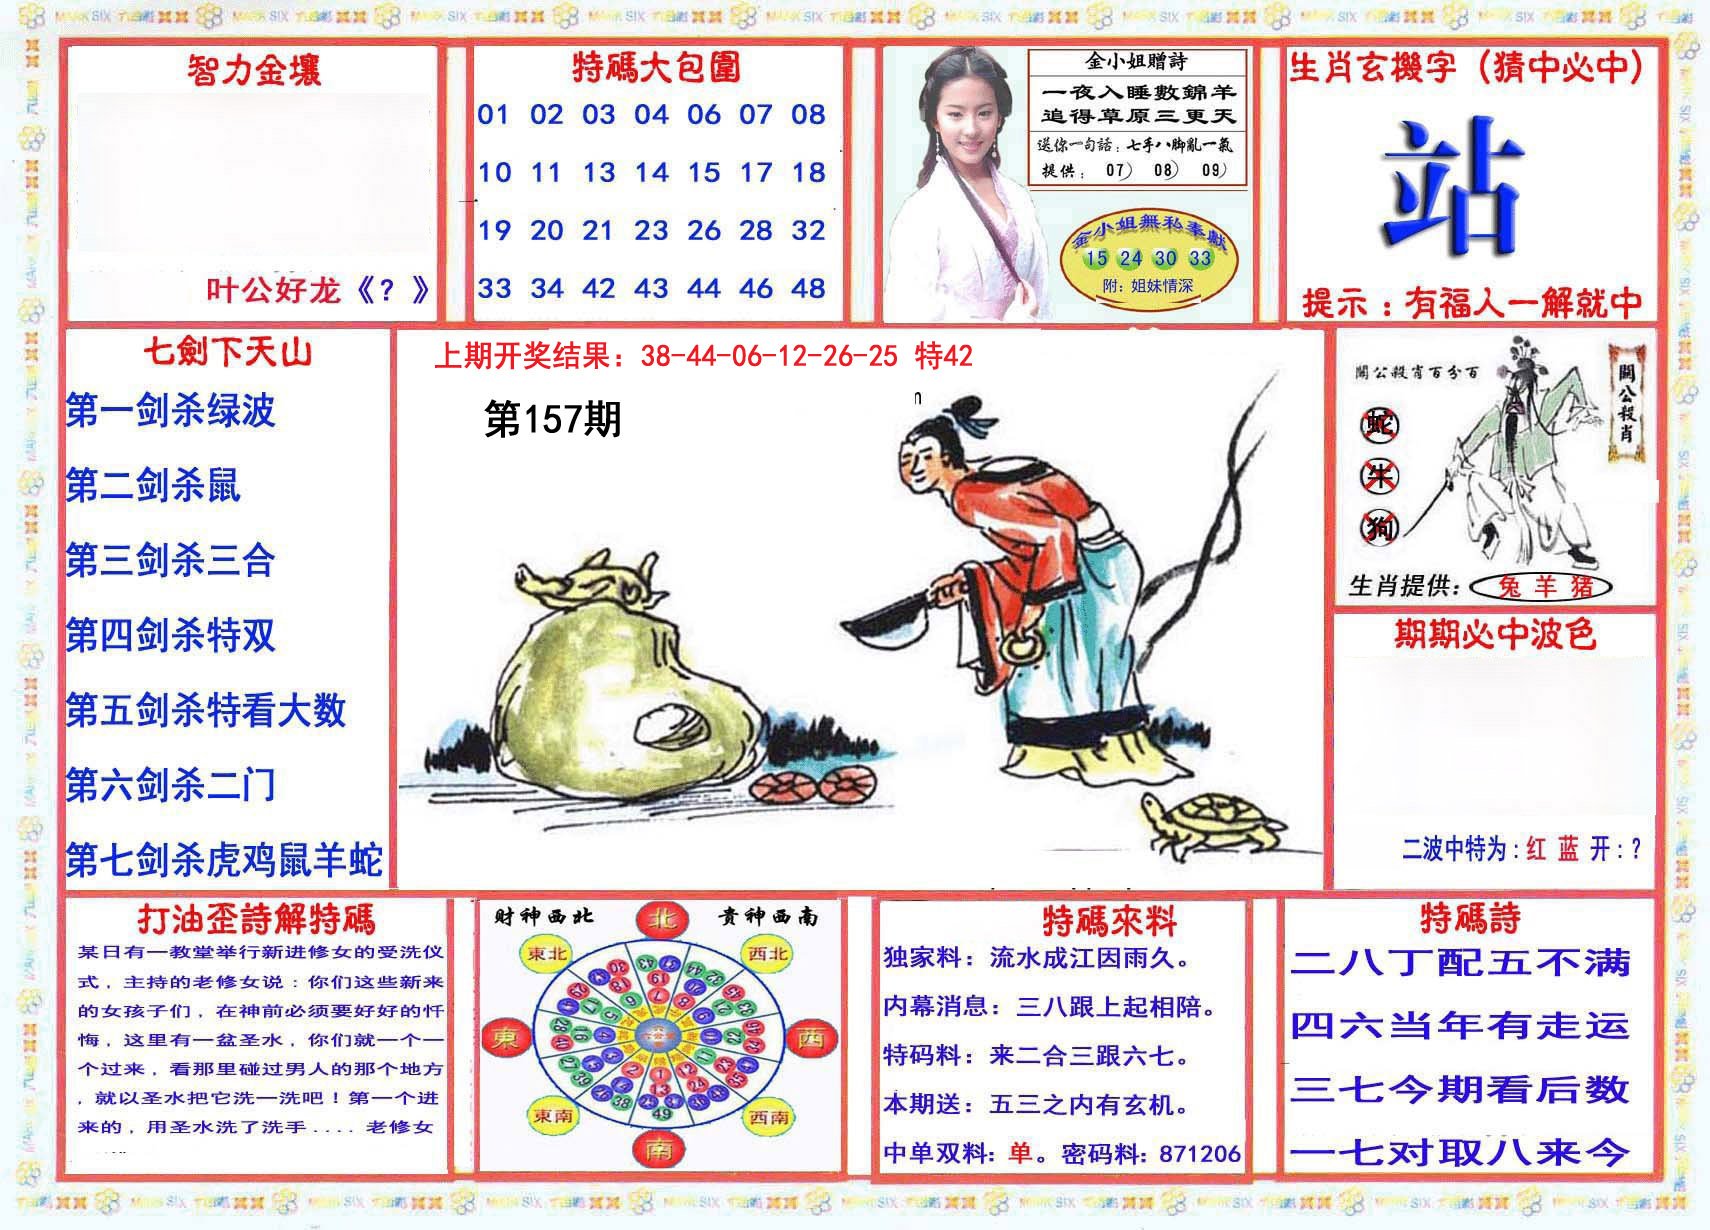 智力金壤
叶公好龙《？》
特碼大包圍
01 02 03 04 06 07 08
10 11 13 14 15 17 18
19 20 21 23 26 28 32
33 34 42 43 44 46 48
金小姐贈詩
一夜入睡數錦羊
追得草原三更天
送你一句話：七手八脚亂一氣
提供： 07） 08） 09）
金小姐無私奉獻
15 24 30 33
附：姐妹情深
生肖玄機字（猜中必中）
站
提示：有福人一解就中
七劍下天山
第一剑杀绿波
第二剑杀鼠
第三剑杀三合
第四剑杀特双
第五剑杀特看大数
第六剑杀二门
第七剑杀虎鸡鼠羊蛇
上期开奖结果：38-44-06-12-26-25 特42
第157期
關公殺肖百分百
關公殺肖
蛇
牛
狗
生肖提供： 兔 羊 猪
期期必中波色
二波中特为：红 蓝 开：？
打油歪詩解特碼
某日有一教堂举行新进修女的受洗仪
式，主持的老修女说：你们这些新来
的女孩子们，在神前必须要好好的忏
悔，这里有一盆圣水，你们就一个一
个过来，看那里碰过男人的那个地方
，就以圣水把它洗一洗吧！第一个进
来的，用圣水洗了洗手．．．．老修女
財神西北 貴神西南
北
東北 西北
東 西
東南 西南
南
特碼來料
独家料：流水成江因雨久。
内幕消息：三八跟上起相陪。
特码料：来二合三跟六七。
本期送：五三之内有玄机。
中单双料：单。密码料：871206
特碼詩
二八丁配五不满
四六当年有走运
三七今期看后数
一七对取八来今